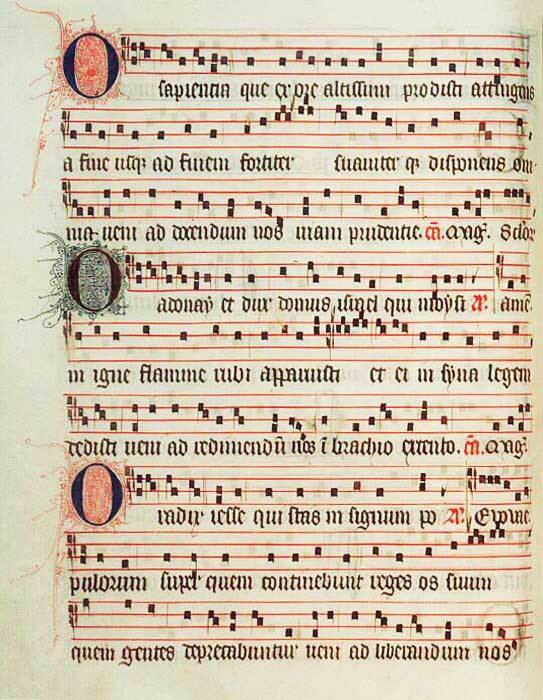 O sapientia que ex ore altissimi prodisti attingens
a fine usq; ad finem fortiter suauiter q; disponens om
nia ueni ad docendum nos uiam prudentie. añ. Mag̃.
O adonay et dux domus israel qui moysi R. amẽ.
in igne flamme rubi apparuisti et ei in syna legem
dedisti ueni ad redimendũ nos ĩ brachio extento. añ. Mag̃.
O radix iesse qui stas in signum po R.
pulorum super quem continebunt reges os suum
quem gentes deprecabuntur ueni ad liberandum nos